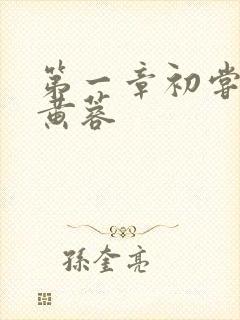 第一章初尝
黄蓉
孫奎亮